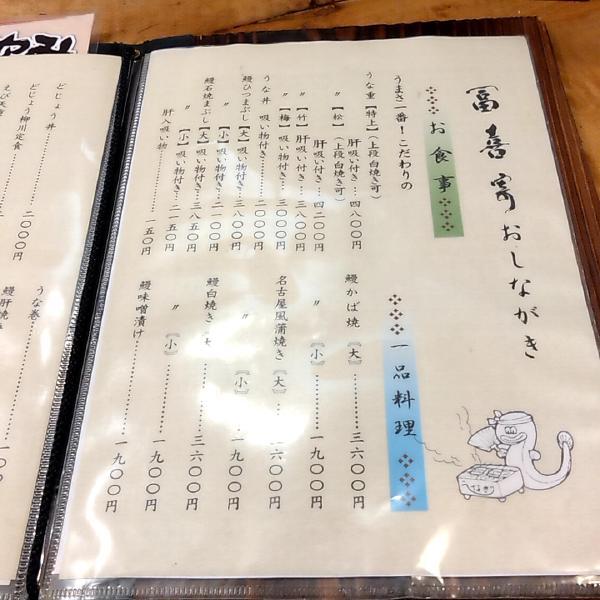 冨喜寄おしながき
お食事
うまさ一番!こだわりの
うな重【特上】(上段白焼き可)
肝吸い付き…四八〇〇円
〃【松】(上段白焼き可)
肝吸い付き…四二〇〇円
〃【竹】肝吸い付き…三八〇〇円
〃【梅】吸い物付き…三〇〇〇円
うな丼 吸い物付き…………二〇〇〇円
鰻ひつまぶし【大】吸い物付き…三九〇〇円
〃【小】吸い物付き…二一〇〇円
鰻石焼まぶし【大】吸い物付き…三八五〇円
〃【小】吸い物付き…二一五〇円
肝入吸い物………………一五〇円
一品料理
鰻かば焼〔大〕…………三六〇〇円
〃〔小〕…………一九〇〇円
名古屋風蒲焼き〔大〕…三六〇〇円
〃〔小〕…一九〇〇円
鰻白焼き〔大〕…………三六〇〇円
〃〔小〕…………一九〇〇円
鰻味噌漬け…………一九〇〇円
うなぎ
どじょう丼
どじょう柳川定食
……二〇〇〇円
えび天重
うな巻
鰻肝焼き